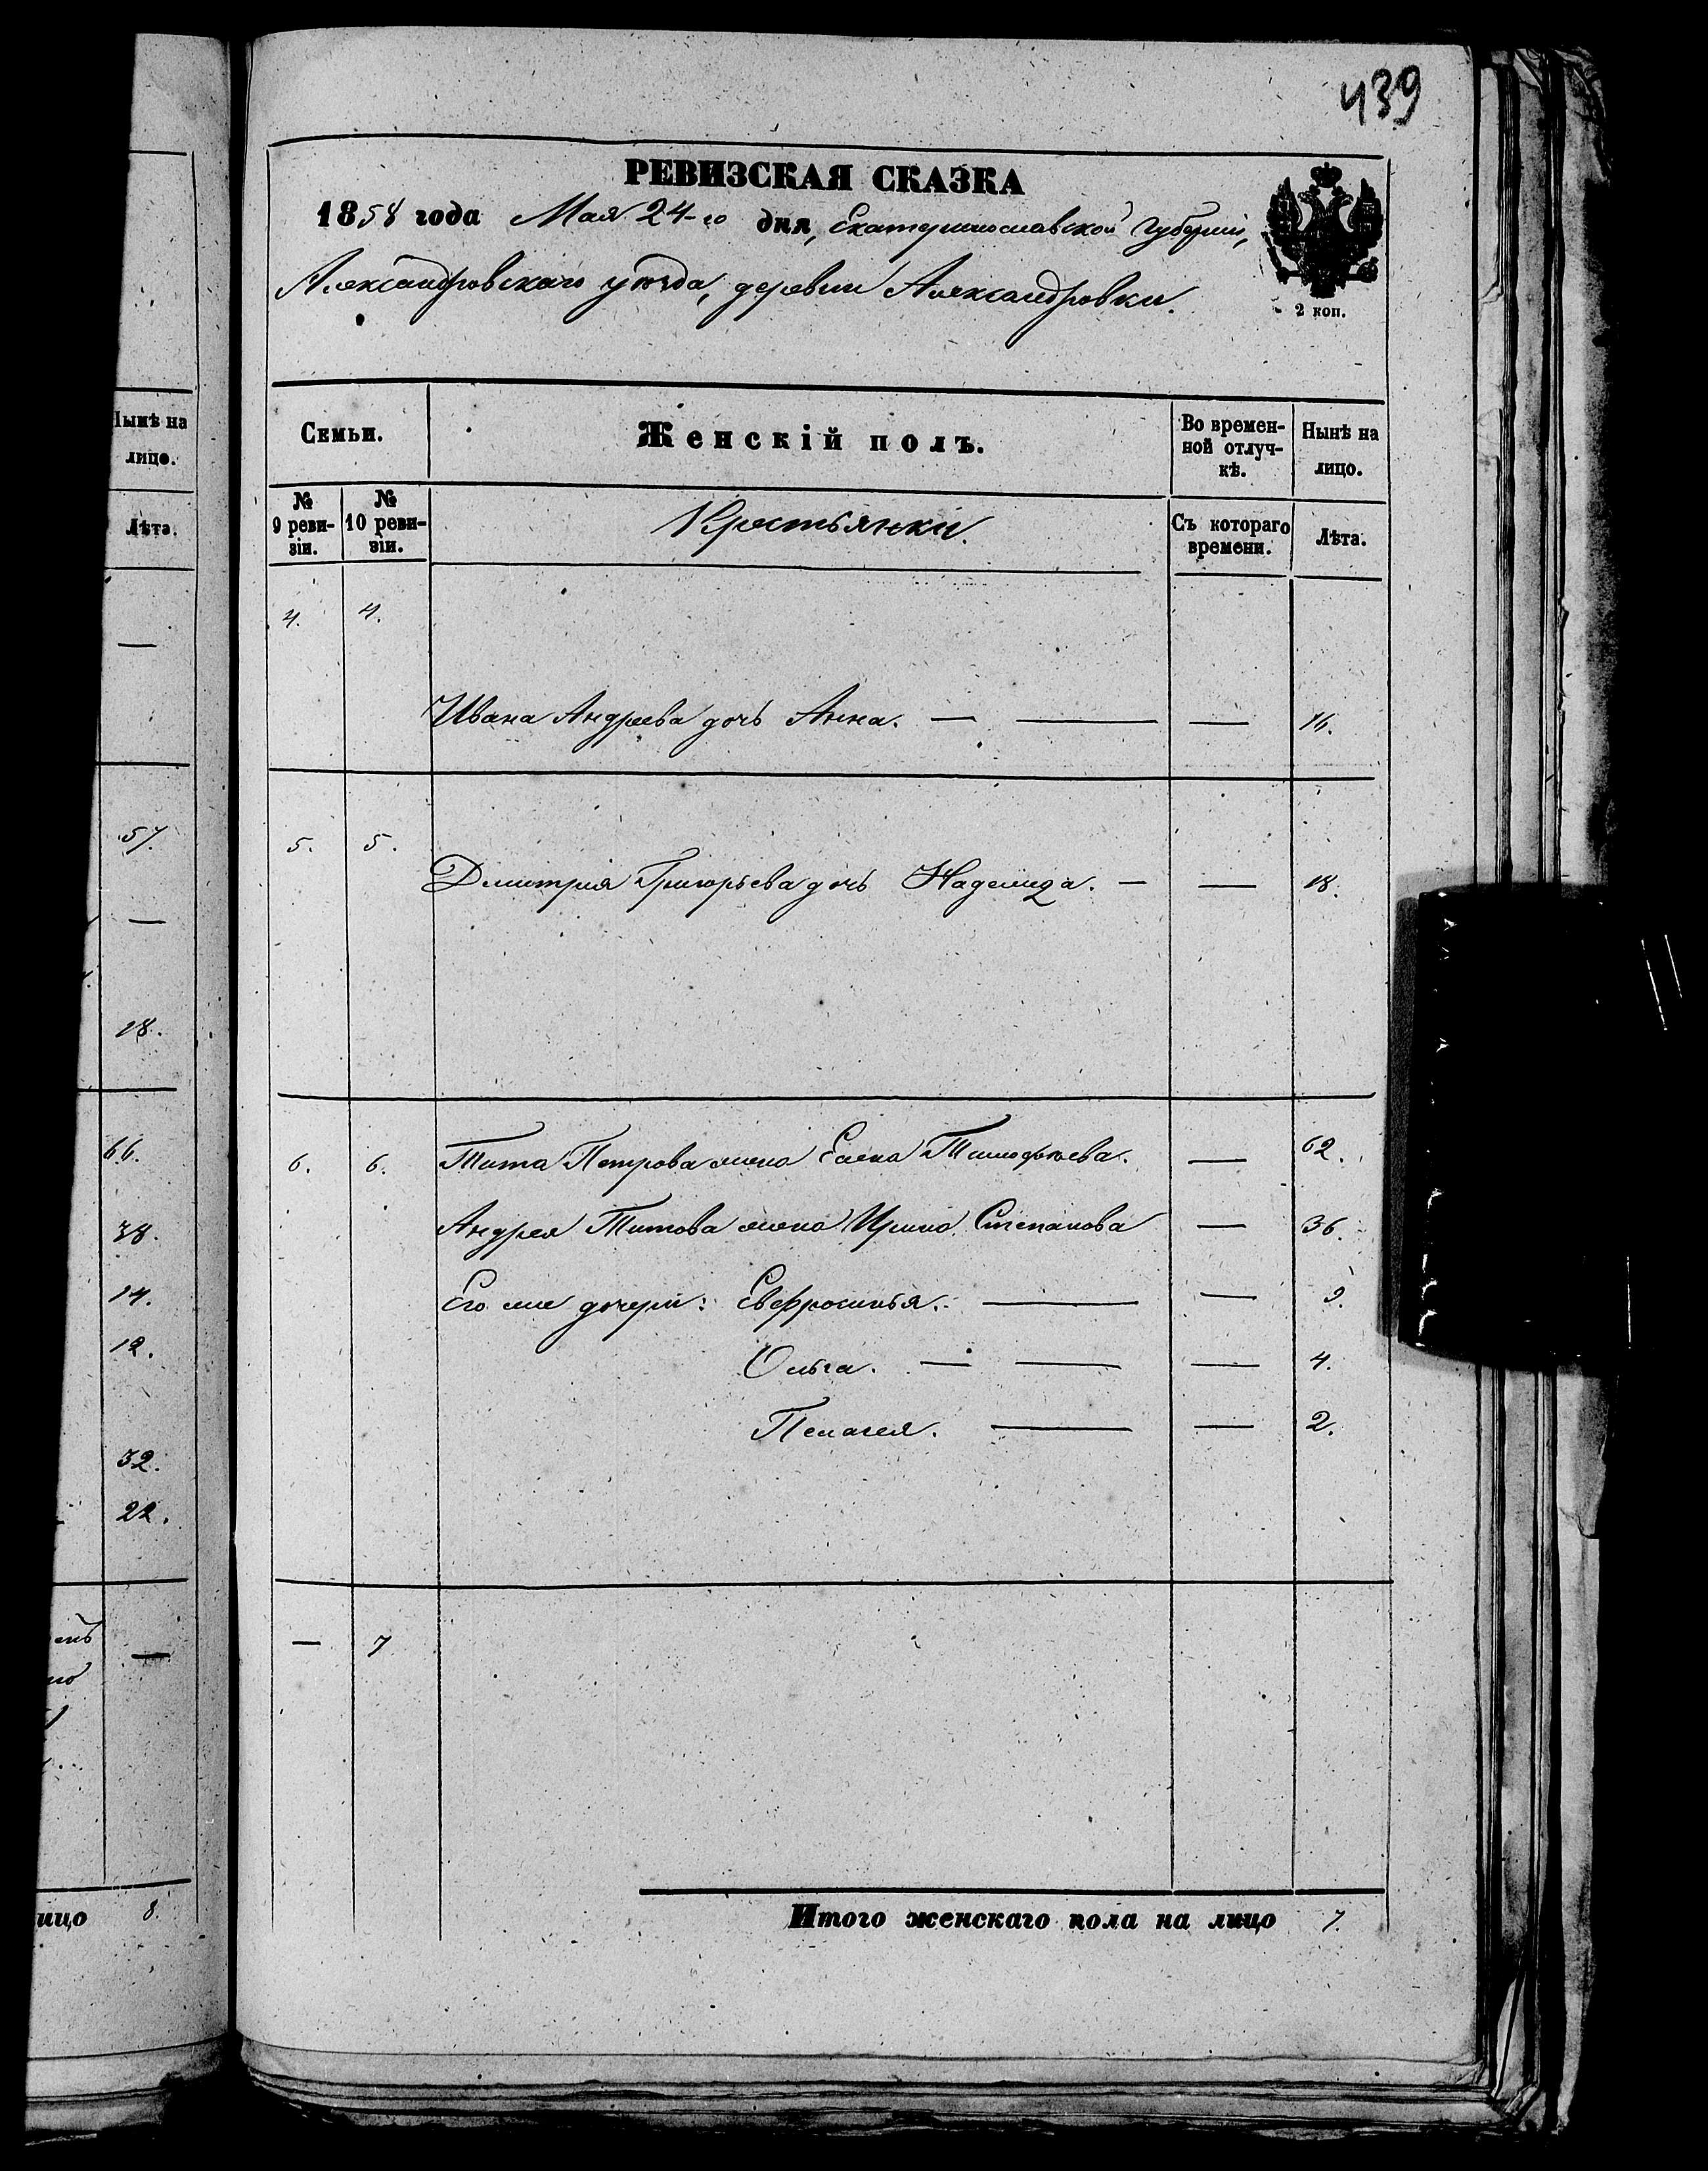 439
РЕВИЗСКАЯ СКАЗКА
1858 года Мая 24-го дня, Екатеринославской Губерніи,
Александровскаго уѣзда, деревни Александровки.
2 коп.
Нынѣ на
лицо.
Лѣта.
57.
18.
66.
38.
14.
12.
32.
22.
лицо 8.
Семьи.
Женскій полъ.
Во времен-
ной отлуч-
кѣ.
Нынѣ на
лицо.
№
9 реви-
зіи.
№
10 реви-
зіи.
Крестьянки.
Съ котораго
времени.
Лѣта.
4. 4.
Ивана Андреева дочь Анна. — — — 16.
5. 5.
Дмитрія Григорьева дочь Надежда. — — 18.
6. 6. Тита Петрова жена Елена Тимофѣева. — 62.
Андрея Титова жена Ирина Степанова — 36.
Его же дочери: Евфросинья. — — 9.
Ольга. — — — 4.
Пелагея. — — 2.
— 7
Итого женскаго пола на лицо 7.